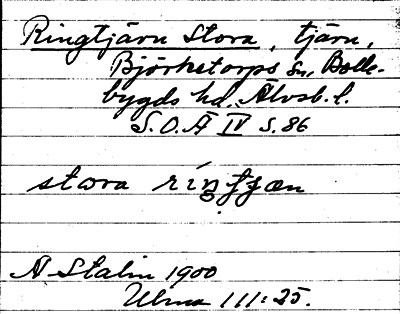 Ringtjärn Stora, tjärn,
Björketorps sn, Bolle-
bygds hd. Älvsb. l.
S.O.Ä IV s. 86
stora
A Stalin 1900
111:25.